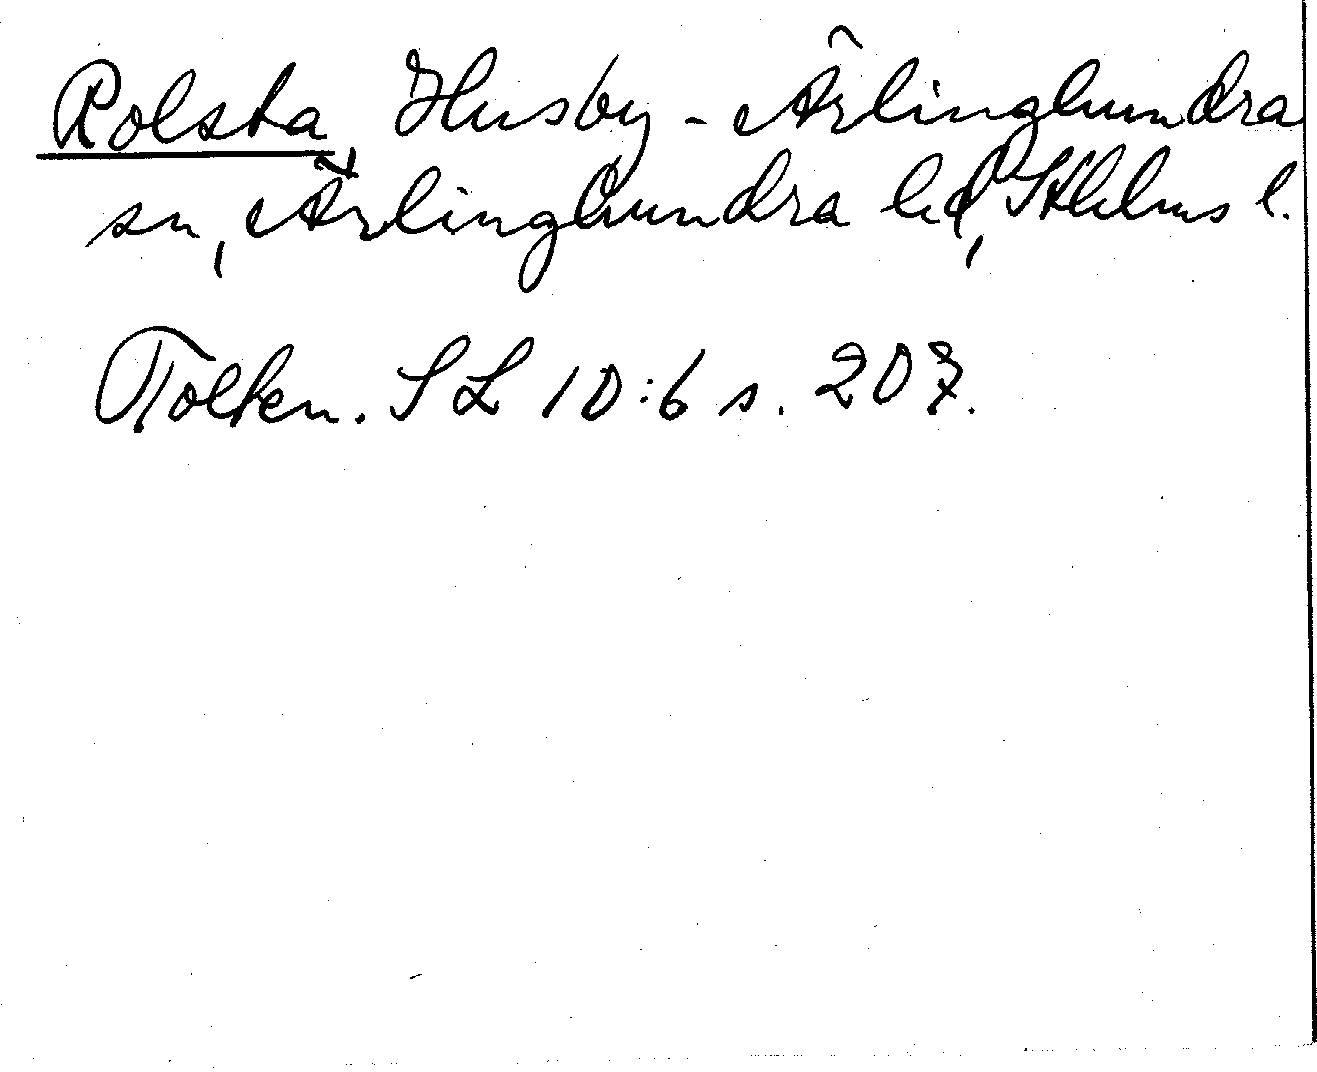 Rolsta, Husby-Ärlinghundra
sn, Ärlinghundra hd, Sthlms l.
Tolkn. SL 10:6 s. 207.